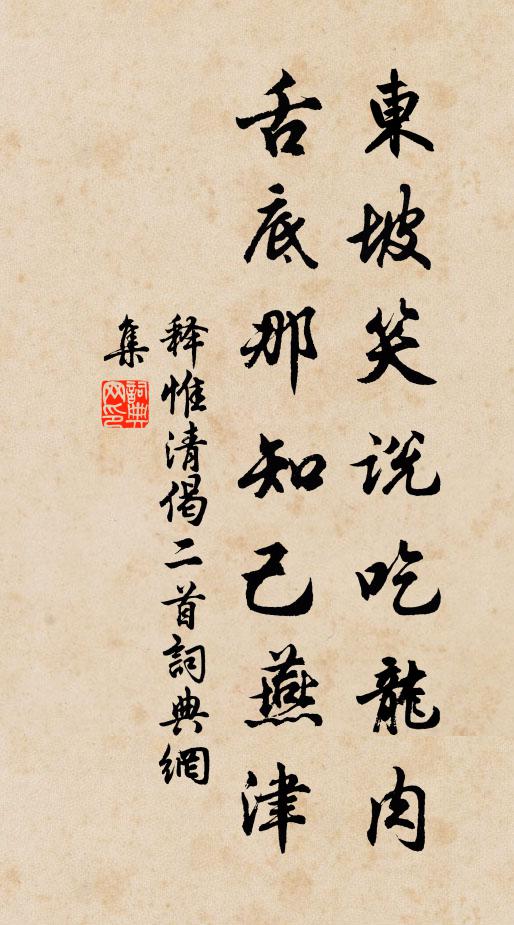 東坡笑说吃龍肉
舌底那知已燕津
释惟清偈二首詞典網
集
詞典網印